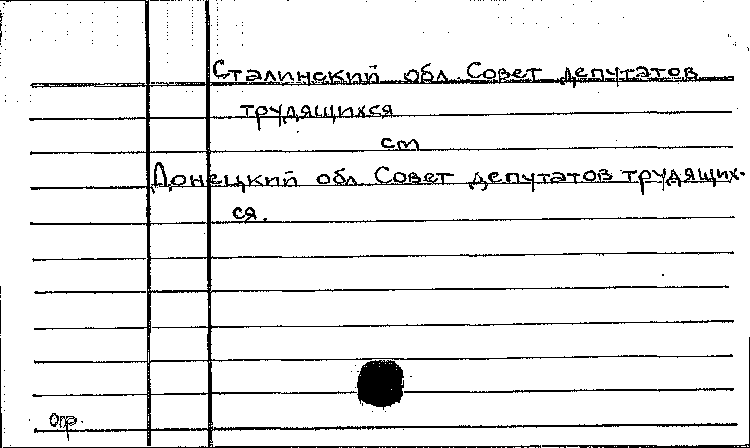 Сталинский обл. Совет депутатов
трудящихся
см
Донецкий обл. Совет депутатов трудящих-
ся.
Опр.